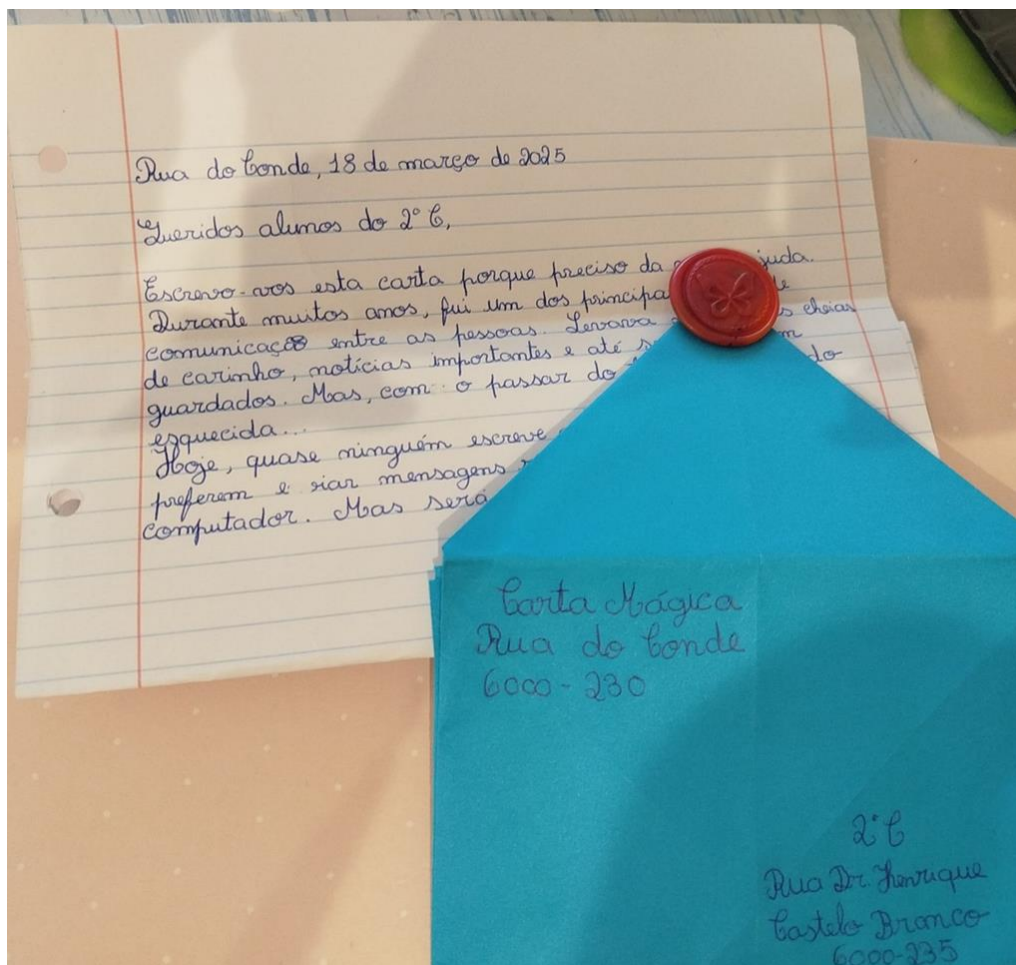 Rua do Conde, 18 de março de 2025
Queridos alunos do 2º C,
Escrevo-vos esta carta porque preciso da juda.
Durante muitos anos, fui um dos principa
comunicação entre as pessoas. Levava s cheias
de carinho, notícias importantes e até
guardados. Mas, com o passar do do
esquecida...
Hoje, quase ninguém escreve
preferem mensagens
computador. Mas será
Carta Mágica
Rua do Conde
6000-230
2º C
Rua Dr. Henrique
Castelo Branco
6000-235